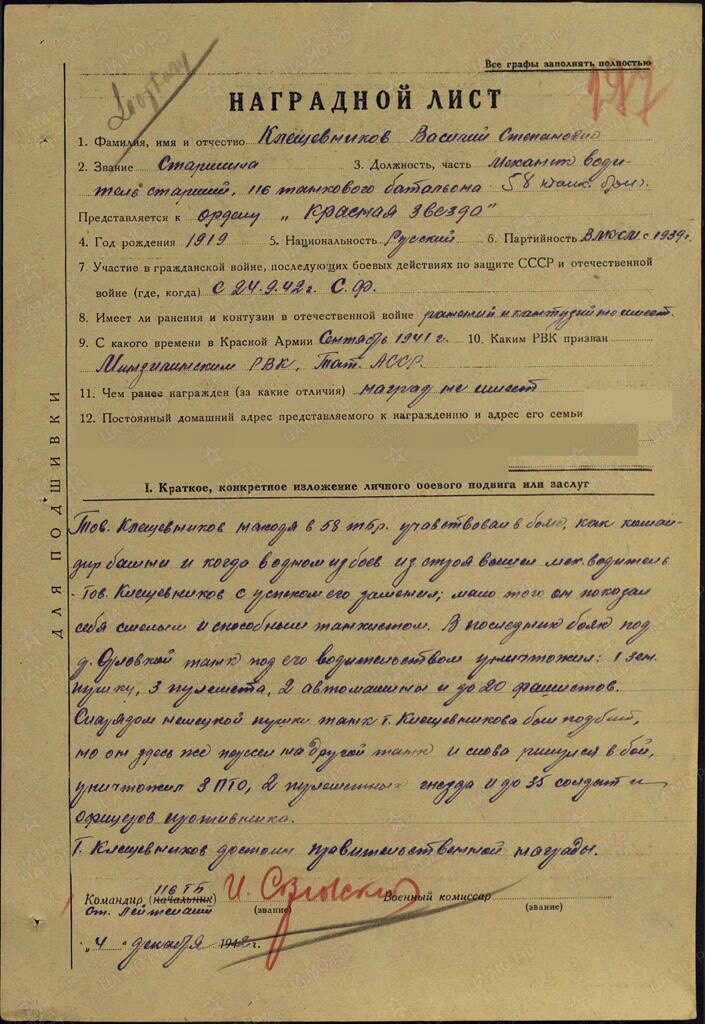 Все графы заполнять полностью
НАГРАДНОЙ ЛИСТ
1. Фамилия, имя и отчество Клещевников Василий Степанович
2. Звание Старшина 3. Должность, часть Механик води-
тель старший, 116 танкового батальона 58 танк. бриг.
Представляется к ордену „Красная звезда"
4. Год рождения 1919 5. Национальность Русский 6. Партийность ВЛКСМ с 1939г.
7. Участие в гражданской войне, последующих боевых действиях по защите СССР и отечественной
войне (где, когда) С 24.9.42г. С.Ф.
8. Имеет ли ранения и контузии в отечественной войне ранений и контузий не имеет.
9. С какого времени в Красной Армии Сентябрь 1941 г. 10. Каким РВК призван
Мензелинским РВК, Тат. АССР.
11. Чем ранее награжден (за какие отличия) наград не имеет
12. Постоянный домашний адрес представляемого к награждению и адрес его семьи
I. Краткое, конкретное изложение личного боевого подвига или заслуг
Тов. Клещевников находя в 58 тбр. учавствовал в боях, как коман-
дир башни и когда в одном из боев из строя вышел мех. водитель
- Тов. Клещевников с успехом его заменил; мало того он показал
себя смелым и способным танкистом. В последних боях под
д. Орловкой танк под его водительством уничтожил: 1 зен.
пушку, 3 пулемета, 2 автомашины и до 20 фашистов.
Снарядом немецкой пушки танк т. Клещевникова был подбит,
но он здесь же пересел на другой танк и снова ринулся в бой,
уничтожил 3 ПТО, 2 пулеметных гнезда и до 35 солдат и
офицеров противника.
Т. Клещевников достоин правительственной награды.
116 ТБ
Командир (начальник) Военный комиссар
Ст. Лейтенант (звание) (звание)
„4" декабря 1942г.
ДЛЯ ПОДШИВКИ